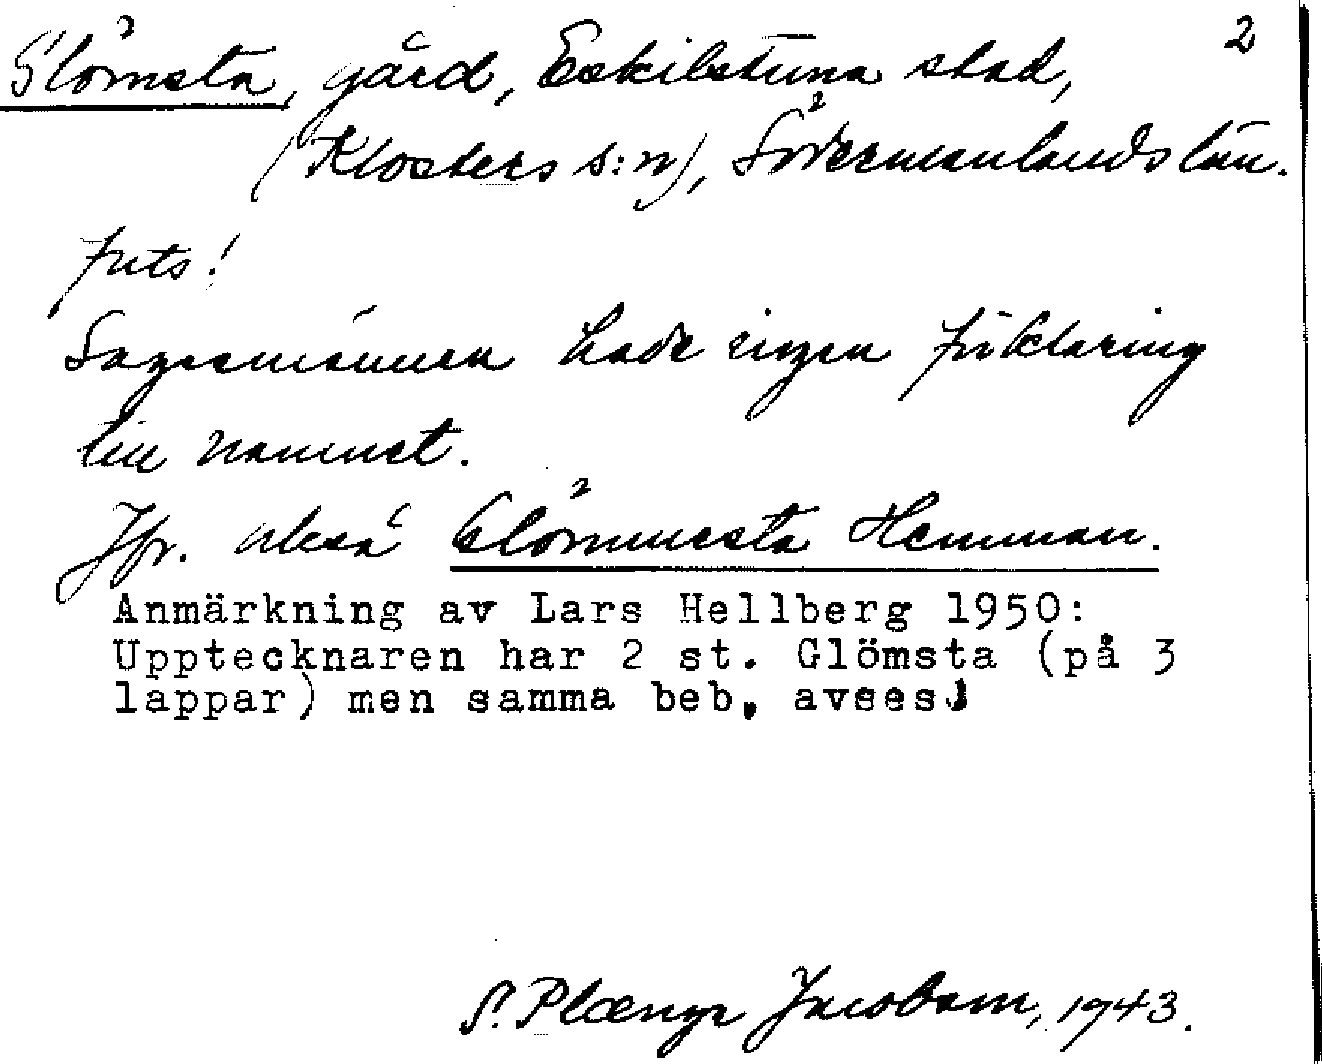 2
Glömsta, gård, Eskilstuna stad,
(Klosters s:n), Södermanlands län.
forts!
Sagesmännen hade ingen förklaring
till namnet.
Jfr. också Glömmesta Hemman.
Anmärkning av Lars Hellberg 1950:
Upptecknaren har 2 st. Glömsta (på 3
lappar) men samma beb. avses!
Jacobson, 1943.